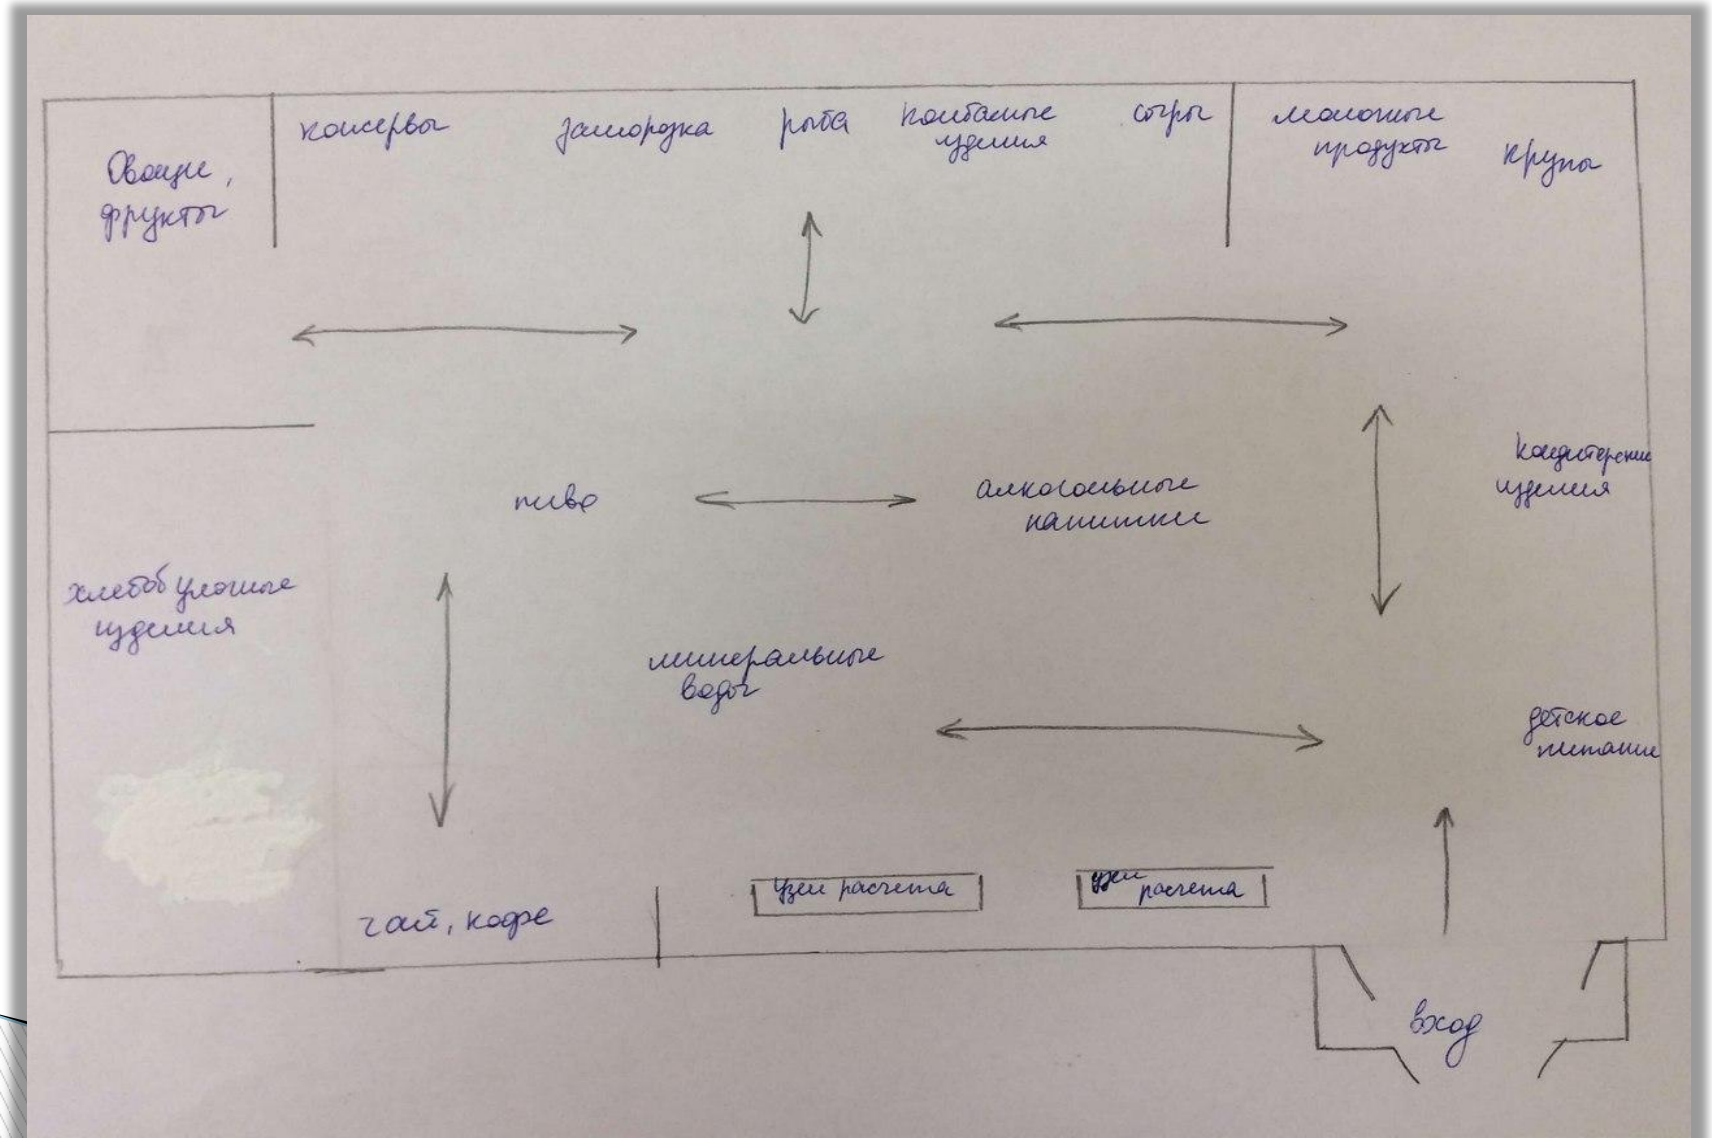 Овощи,
фрукты
консервы
заморозка
рыба
колбасные
изделия
сыры
молочные
продукты
крупы
кондитерские
изделия
пиво
алкогольные
напитки
хлебобулочные
изделия
минеральные
воды
детское
питание
чай, кофе
Узел расчета
узел
расчета
вход